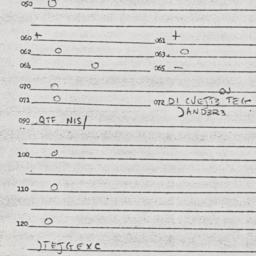 050 O
060 + 061 +
062 O 063. O
064 O 065 —
070 O
071 O 072 DI CUETTS TEG
090 QTF NIS/
100 O
110 O
120 O
)TEJGEXC